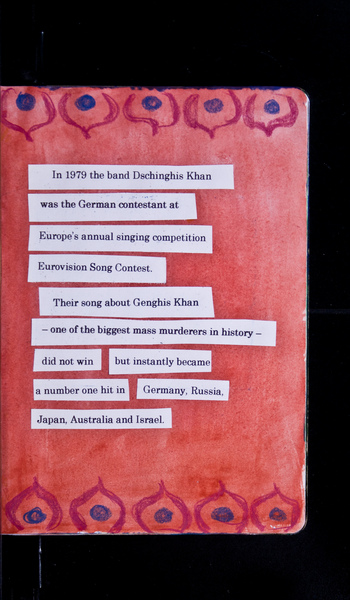 In 1979 the band Dschinghis Khan
was the German contestant at
Europe's annual singing competition
Eurovision Song Contest.
Their song about Genghis Khan
– one of the biggest mass murderers in history –
did not win but instantly became
a number one hit in Germany, Russia,
Japan, Australia and Israel.